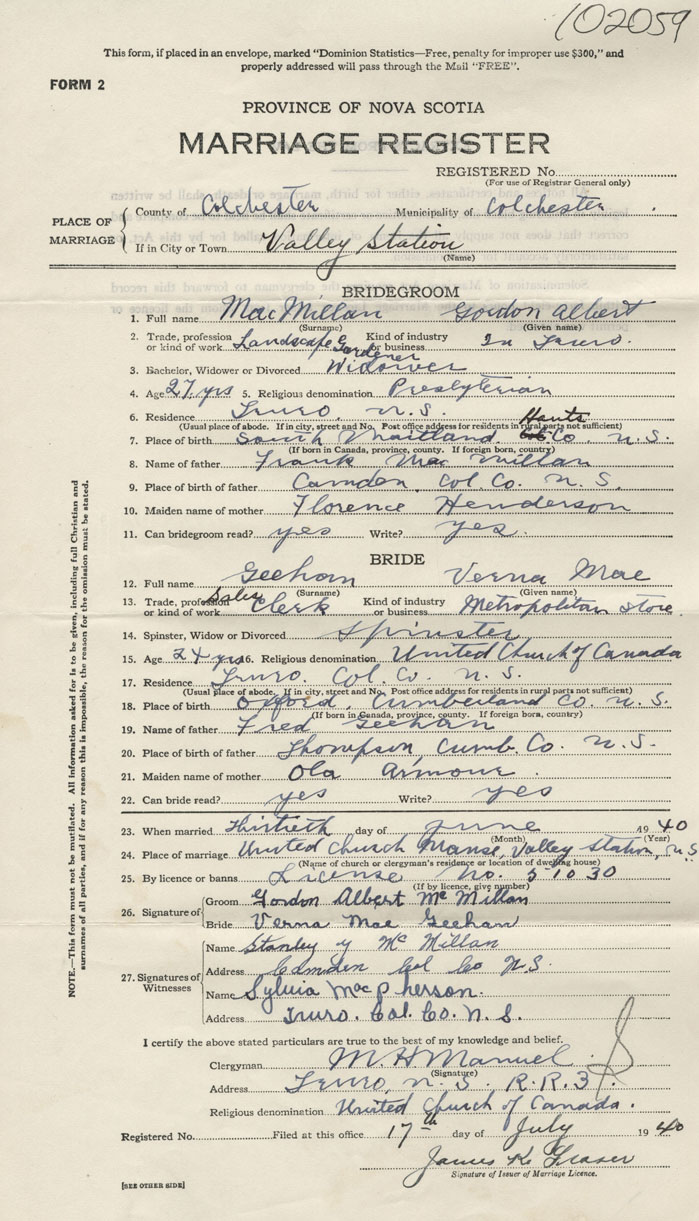 102059
This form, if placed in an envelope, marked "Dominion Statistics—Free, penalty for improper use $300," and
properly addressed will pass through the Mail "FREE".
FORM 2
PROVINCE OF NOVA SCOTIA
MARRIAGE REGISTER
REGISTERED No.
(For use of Registrar General only)
PLACE OF MARRIAGE
County of Colchester Municipality of Colchester
If in City or Town Valley Station
(Name)
BRIDEGROOM
1. Full name MacMillan Gordon Albert
(Surname) (Given name)
2. Trade, profession or kind of work Landscape Gardener Kind of industry or business In Truro.
3. Bachelor, Widower or Divorced Widower
4. Age 27 yrs 5. Religious denomination Presbyterian
6. Residence Truro. N.S.
(Usual place of abode. If in city, street and No. Post office address for residents in rural parts not sufficient)
7. Place of birth South Maitland Hants Co N.S.
(If born in Canada, province, county. If foreign born, country)
8. Name of father Frank MacMillan
9. Place of birth of father Camden, Col. Co. N.S.
10. Maiden name of mother Florence Henderson
11. Can bridegroom read? yes Write? yes.
BRIDE
12. Full name Geehan Verna Mae
(Surname) (Given name)
13. Trade, profession or kind of work Sales Clerk Kind of industry or business Metropolitan Store
14. Spinster, Widow or Divorced Spinster
15. Age 24 yrs 16. Religious denomination United Church of Canada
17. Residence Truro. Col. Co. N.S.
(Usual place of abode. If in city, street and No. Post office address for residents in rural parts not sufficient)
18. Place of birth Oxford, Cumberland Co. N.S.
(If born in Canada, province, county. If foreign born, country)
19. Name of father Fred Geehan
20. Place of birth of father Thompson, Cumb. Co. N.S.
21. Maiden name of mother Ola Armour.
22. Can bride read? yes Write? yes
23. When married Thirtieth day of June 1940
(Month) (Year)
24. Place of marriage United Church Manse, Valley Station, N.S.
(Name of church or clergyman's residence or location of dwelling house)
25. By licence or banns License No. 51030
(If by licence, give number)
26. Signature of
Groom Gordon Albert McMillan
Bride Verna Mae Geehan
27. Signatures of Witnesses
Name Stanley y McMillan
Address Camden Col Co N.S.
Name Sylvia MacPherson.
Address Truro. Col. Co. N.S.
I certify the above stated particulars are true to the best of my knowledge and belief.
Clergyman M. H. Manuel
(Signature)
Address Truro, N.S. R.R.3
Religious denomination United Church of Canada.
Registered No. Filed at this office 17th day of July 1940
James K. Fraser
Signature of Issuer of Marriage Licence.
[SEE OTHER SIDE]
NOTE.—This form must not be mutilated. All information asked for is to be given, including full Christian and
surnames of all parties, and if for any reason this is impossible, the reason for the omission must be stated.